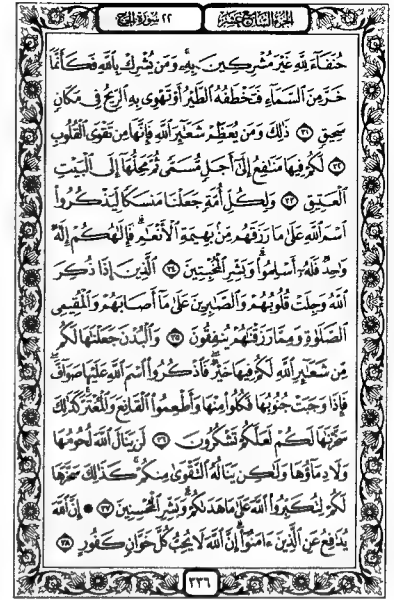 الجزء السابع عشر
٢٢ سورة الحج
حُنَفَآءَ لِلَّهِ غَيْرَ مُشْرِكِينَ بِهِۦۚ وَمَن يُشْرِكْ بِٱللَّهِ فَكَأَنَّمَا
خَرَّ مِنَ ٱلسَّمَآءِ فَتَخْطَفُهُ ٱلطَّيْرُ أَوْ تَهْوِى بِهِ ٱلرِّيحُ فِى مَكَانٍ
سَحِيقٍ ٣١ ذَٰلِكَ وَمَن يُعَظِّمْ شَعَٰٓئِرَ ٱللَّهِ فَإِنَّهَا مِن تَقْوَى ٱلْقُلُوبِ
٣٢ لَكُمْ فِيهَا مَنَٰفِعُ إِلَىٰٓ أَجَلٍ مُّسَمًّى ثُمَّ مَحِلُّهَآ إِلَى ٱلْبَيْتِ
ٱلْعَتِيقِ ٣٣ وَلِكُلِّ أُمَّةٍ جَعَلْنَا مَنسَكًا لِّيَذْكُرُوا۟
ٱسْمَ ٱللَّهِ عَلَىٰ مَا رَزَقَهُم مِّنۢ بَهِيمَةِ ٱلْأَنْعَٰمِۗ فَإِلَٰهُكُمْ إِلَٰهٌ
وَٰحِدٌ فَلَهُۥٓ أَسْلِمُوا۟ۗ وَبَشِّرِ ٱلْمُخْبِتِينَ ٣٤ ٱلَّذِينَ إِذَا ذُكِرَ
ٱللَّهُ وَجِلَتْ قُلُوبُهُمْ وَٱلصَّٰبِرِينَ عَلَىٰ مَآ أَصَابَهُمْ وَٱلْمُقِيمِى
ٱلصَّلَوٰةِ وَمِمَّا رَزَقْنَٰهُمْ يُنفِقُونَ ٣٥ وَٱلْبُدْنَ جَعَلْنَٰهَا لَكُم
مِّن شَعَٰٓئِرِ ٱللَّهِ لَكُمْ فِيهَا خَيْرٌۖ فَٱذْكُرُوا۟ ٱسْمَ ٱللَّهِ عَلَيْهَا صَوَآفَّۖ
فَإِذَا وَجَبَتْ جُنُوبُهَا فَكُلُوا۟ مِنْهَا وَأَطْعِمُوا۟ ٱلْقَانِعَ وَٱلْمُعْتَرَّۚ كَذَٰلِكَ
سَخَّرْنَٰهَا لَكُمْ لَعَلَّكُمْ تَشْكُرُونَ ٣٦ لَن يَنَالَ ٱللَّهَ لُحُومُهَا
وَلَا دِمَآؤُهَا وَلَٰكِن يَنَالُهُ ٱلتَّقْوَىٰ مِنكُمْۚ كَذَٰلِكَ سَخَّرَهَا
لَكُمْ لِتُكَبِّرُوا۟ ٱللَّهَ عَلَىٰ مَا هَدَىٰكُمْۗ وَبَشِّرِ ٱلْمُحْسِنِينَ ٣٧ إِنَّ ٱللَّهَ
يُدَٰفِعُ عَنِ ٱلَّذِينَ ءَامَنُوٓا۟ۗ إِنَّ ٱللَّهَ لَا يُحِبُّ كُلَّ خَوَّانٍ كَفُورٍ ٣٨
٣٣٦